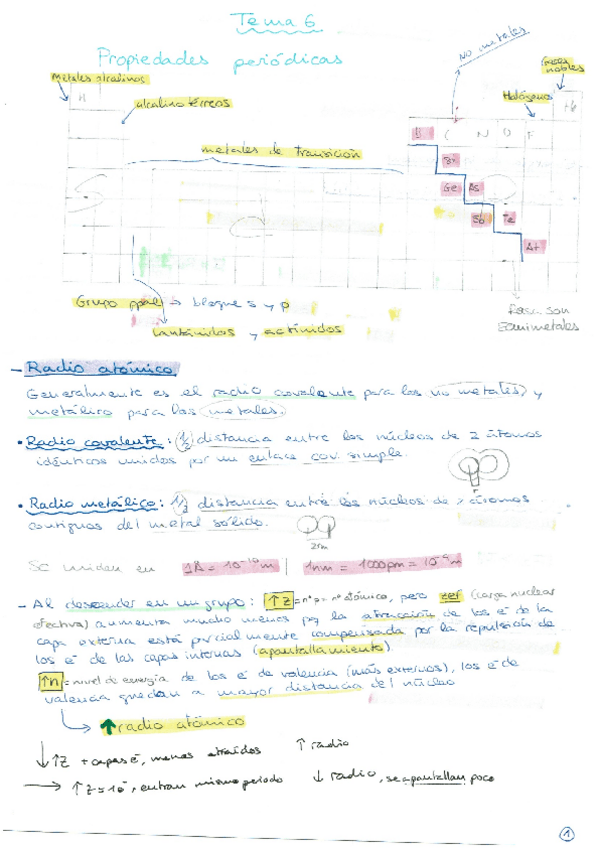 Tema 6
Propiedades periódicas
No metales
gases nobles
Metales alcalinos
H
alcalinotérreos
Halógenos
He
B C N O F
metales de transición
Si
Ge As
Sb Te
At
Grupo ppal → bloque s y p
Lantánidos y actínidos
Rosa son
semimetales
- Radio atómico
Generalmente es el radio covalente para los no metales, y
metálico para los metales.
• Radio covalente: 1/2 distancia entre los núcleos de 2 átomos
idénticos unidos por un enlace cov. simple.
• Radio metálico: 1/2 distancia entre los núcleos de 2 átomos
contiguos del metal sólido.
Se miden en 1Å = 10⁻¹⁰m | 1nm = 1000pm = 10⁻⁹m
- Al descender en un grupo: ↑Z = nº p⁺ = nº atómico, pero zef (carga nuclear
efectiva) aumenta mucho menos pq la atracción de los e⁻ de la
capa externa está parcialmente compensada por la repulsión de
los e⁻ de las capas internas (apantallamiento)
↑n = nivel de energía de los e⁻ de valencia (más externos), los e⁻ de
valencia quedan a mayor distancia del núcleo
↑ radio atómico
↓ ↑Z + capas e⁻, menos atraídos ↑ radio
→ ↑Z = 1e⁻, entran mismo periodo ↓ radio, se apantallan poco
1